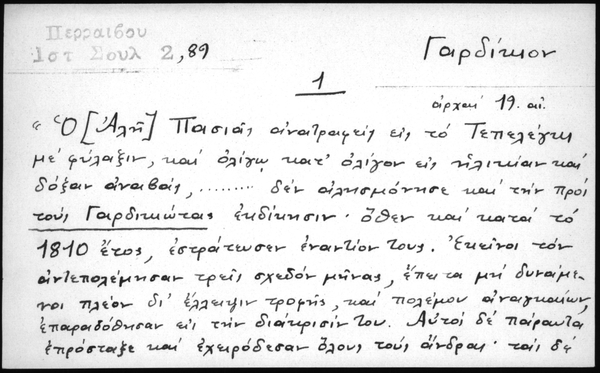 Περραιβου
Ιστ Σουλ 2, 89
Γαρδίκιον
1
ἀρχαί 19. αἰ.
"Ὁ [Ἀλῆ] Πασιᾶς ἀνατραφείς εἰς τό Τεπελένι
μέ φύλαξιν, καί ὀλίγῳ κατ' ὀλίγον εἰς ἡλικίαν καί
δόξαν ἀναβάς, ......... δέν ἀλησμόνησε καί τήν πρός
τούς Γαρδικιώτας ἐκδίκησιν· ὅθεν καί κατά τό
1810 ἔτος, ἐστράτευσεν ἐναντίον τους. Ἐκεῖνοι τόν
ἀντεπολέμησαν τρεῖς σχεδόν μῆνας, ἔπειτα μή δυνάμε-
νοι πλέον δι' ἔλλειψιν τροφῆς, καί πολέμου ἀναγκαίων,
ἐπαραδόθησαν εἰς τήν διάκρισίν του. Αὐτός δέ πάραυτα
ἐπρόσταξε καί ἐχειρόδεσαν ὅλους τούς ἄνδρας· τάς δέ